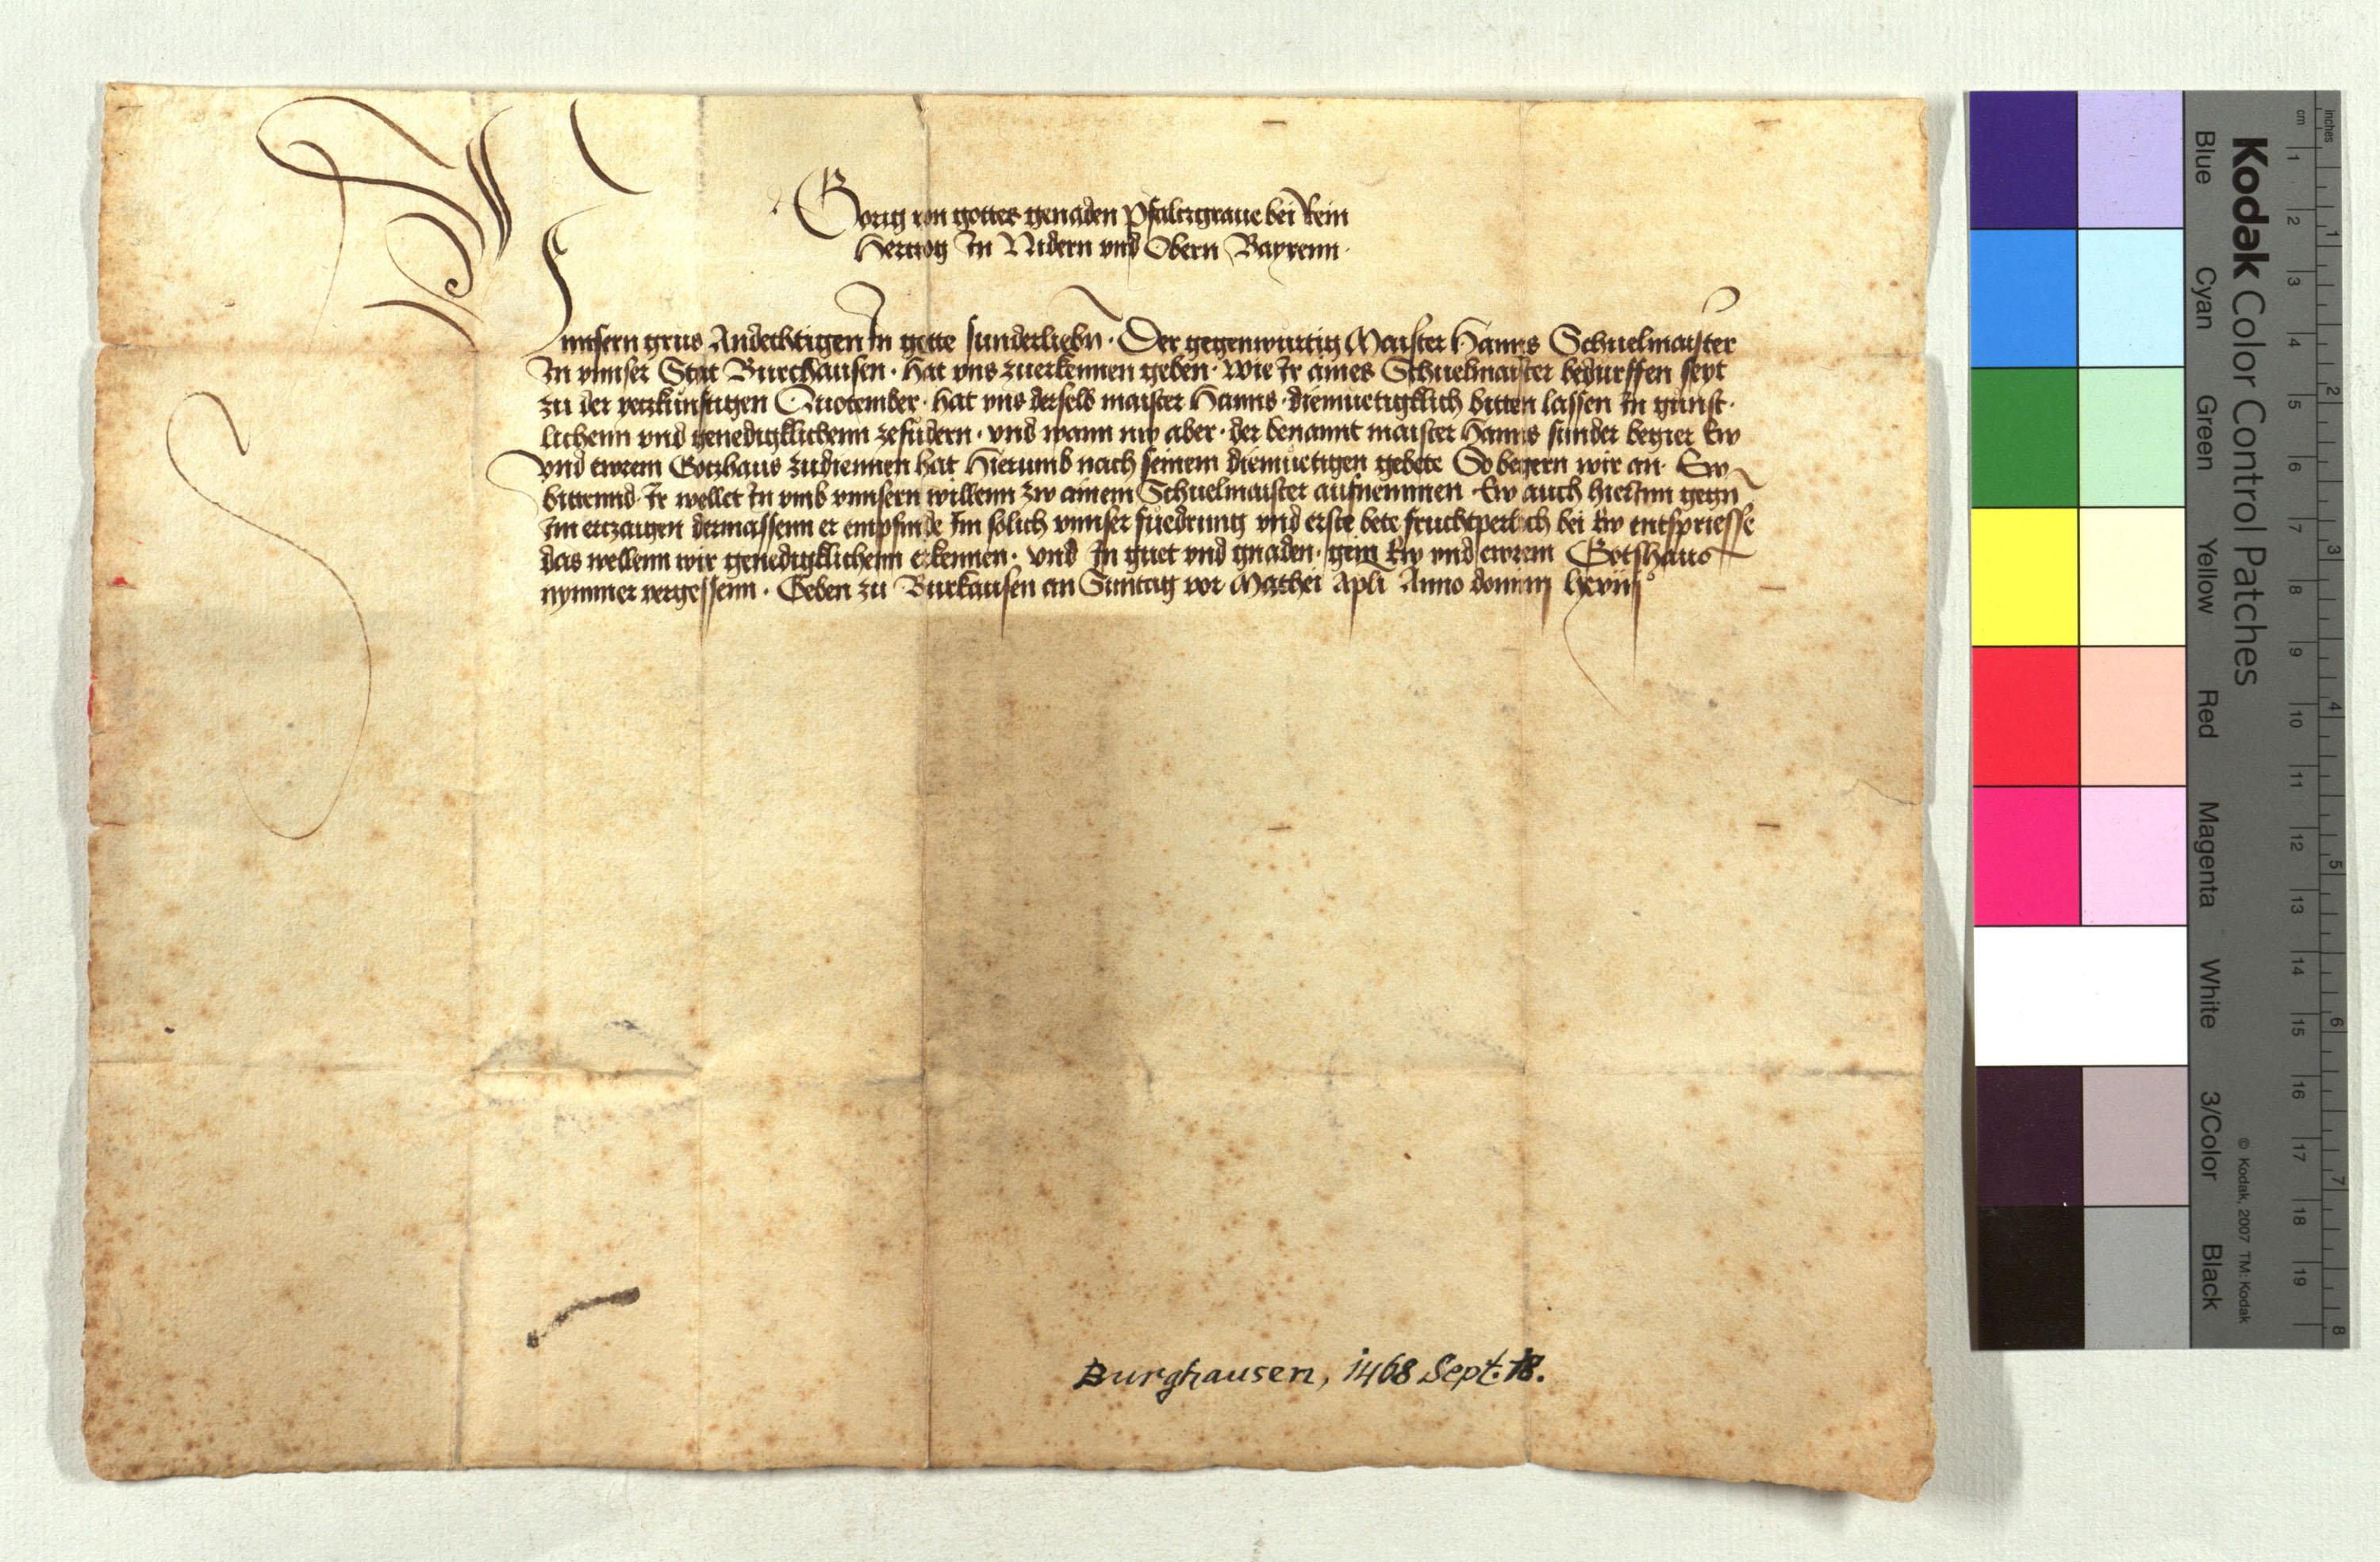 Görig von gottes genaden Pfaltzgraue bei Rein
Hertzog In Nidern vnd Obern Bayrenn·
Vnnsern grus Andechtigen In gotte sunderliebn· Der gegenwurtig Maister Hanns Schuelmaister
In vnnser Stat Burchausen· hat vns zuerkennen geben· Wie Ir aines Schuelmaister bedurffen seyt
zu der verzkunftigen Quotember· hat vns derselb maister Hanns· diemuetigklich bitten lassen In gunst·
lichenn vnd genedigklichenn zefudern· vnd wann nw aber· der benannt maister Hanns sunder begier Ew
vnd ewrem Gotzhaus zudiennen hat Hierumb nach seinem diemuetigen gebete So begern wir an· Ew
bittennd· Ir wellet In vmb vnnsern willenn zw ainem Schuelmaister aufnemmen· Ew auch hierInn gegn
Im ertzaigen dermassenn er empfinde Im solich vnnser fuedrung vnd erste bete fruchtperlich bei Ew entspriesse
das wellenn wir genedigklichenn erkennen· vnd In guet vnd gnaden· gein Ew vnd ewrem Gotshaus
nymmer vergessenn· Geben zu Burkausen an Suntag vor Mathei Apli Anno domini lxviijº
Burghausen, 1468 Sept. 18.
Kodak Color Control Patches
Blue Cyan Green Yellow Red Magenta White 3/Color Black
© Kodak, 2007 TM: Kodak
inches 1 2 3 4 5 6 7 8
cm 1 2 3 4 5 6 7 8 9 10 11 12 13 14 15 16 17 18 19